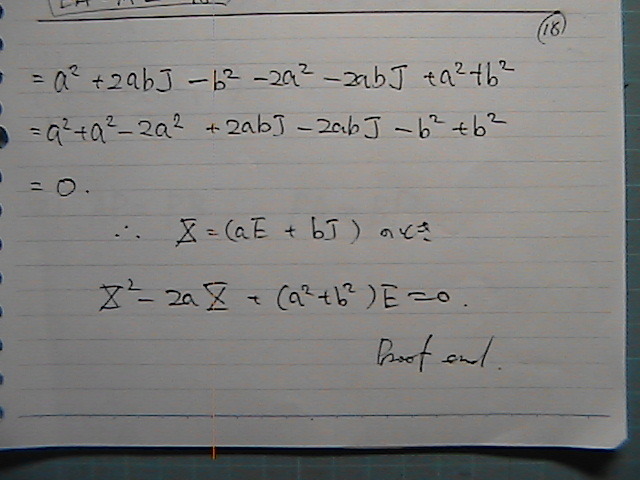 (18)
= a² + 2abJ - b² - 2a² - 2abJ + a² + b²
= a² + a² - 2a² + 2abJ - 2abJ - b² + b²
= 0.
∴ X = (aE + bJ) のとき
X² - 2aX + (a² + b²)E = 0.
Proof end.